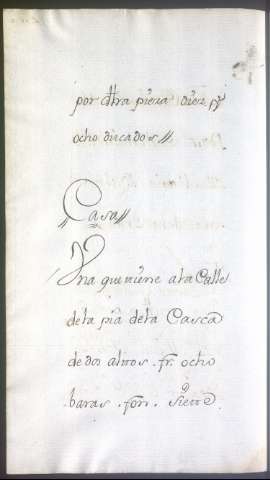 por dha pieza diez y
ocho ducados //
// Casa //
Vna que viene a la Calle
de la pia de la Casca
de dos altos . fr. ocho
baras . fon . siette